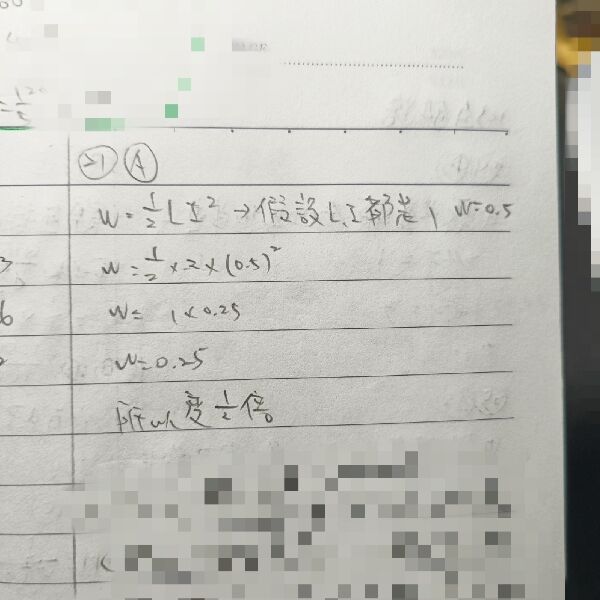 21 A
W = 1/2 L I² → 假設 L, I 都是 1 W=0.5
W = 1/2 × 2 × (0.5)²
W = 1 × 0.25
W=0.25
所以變 1/2 倍。